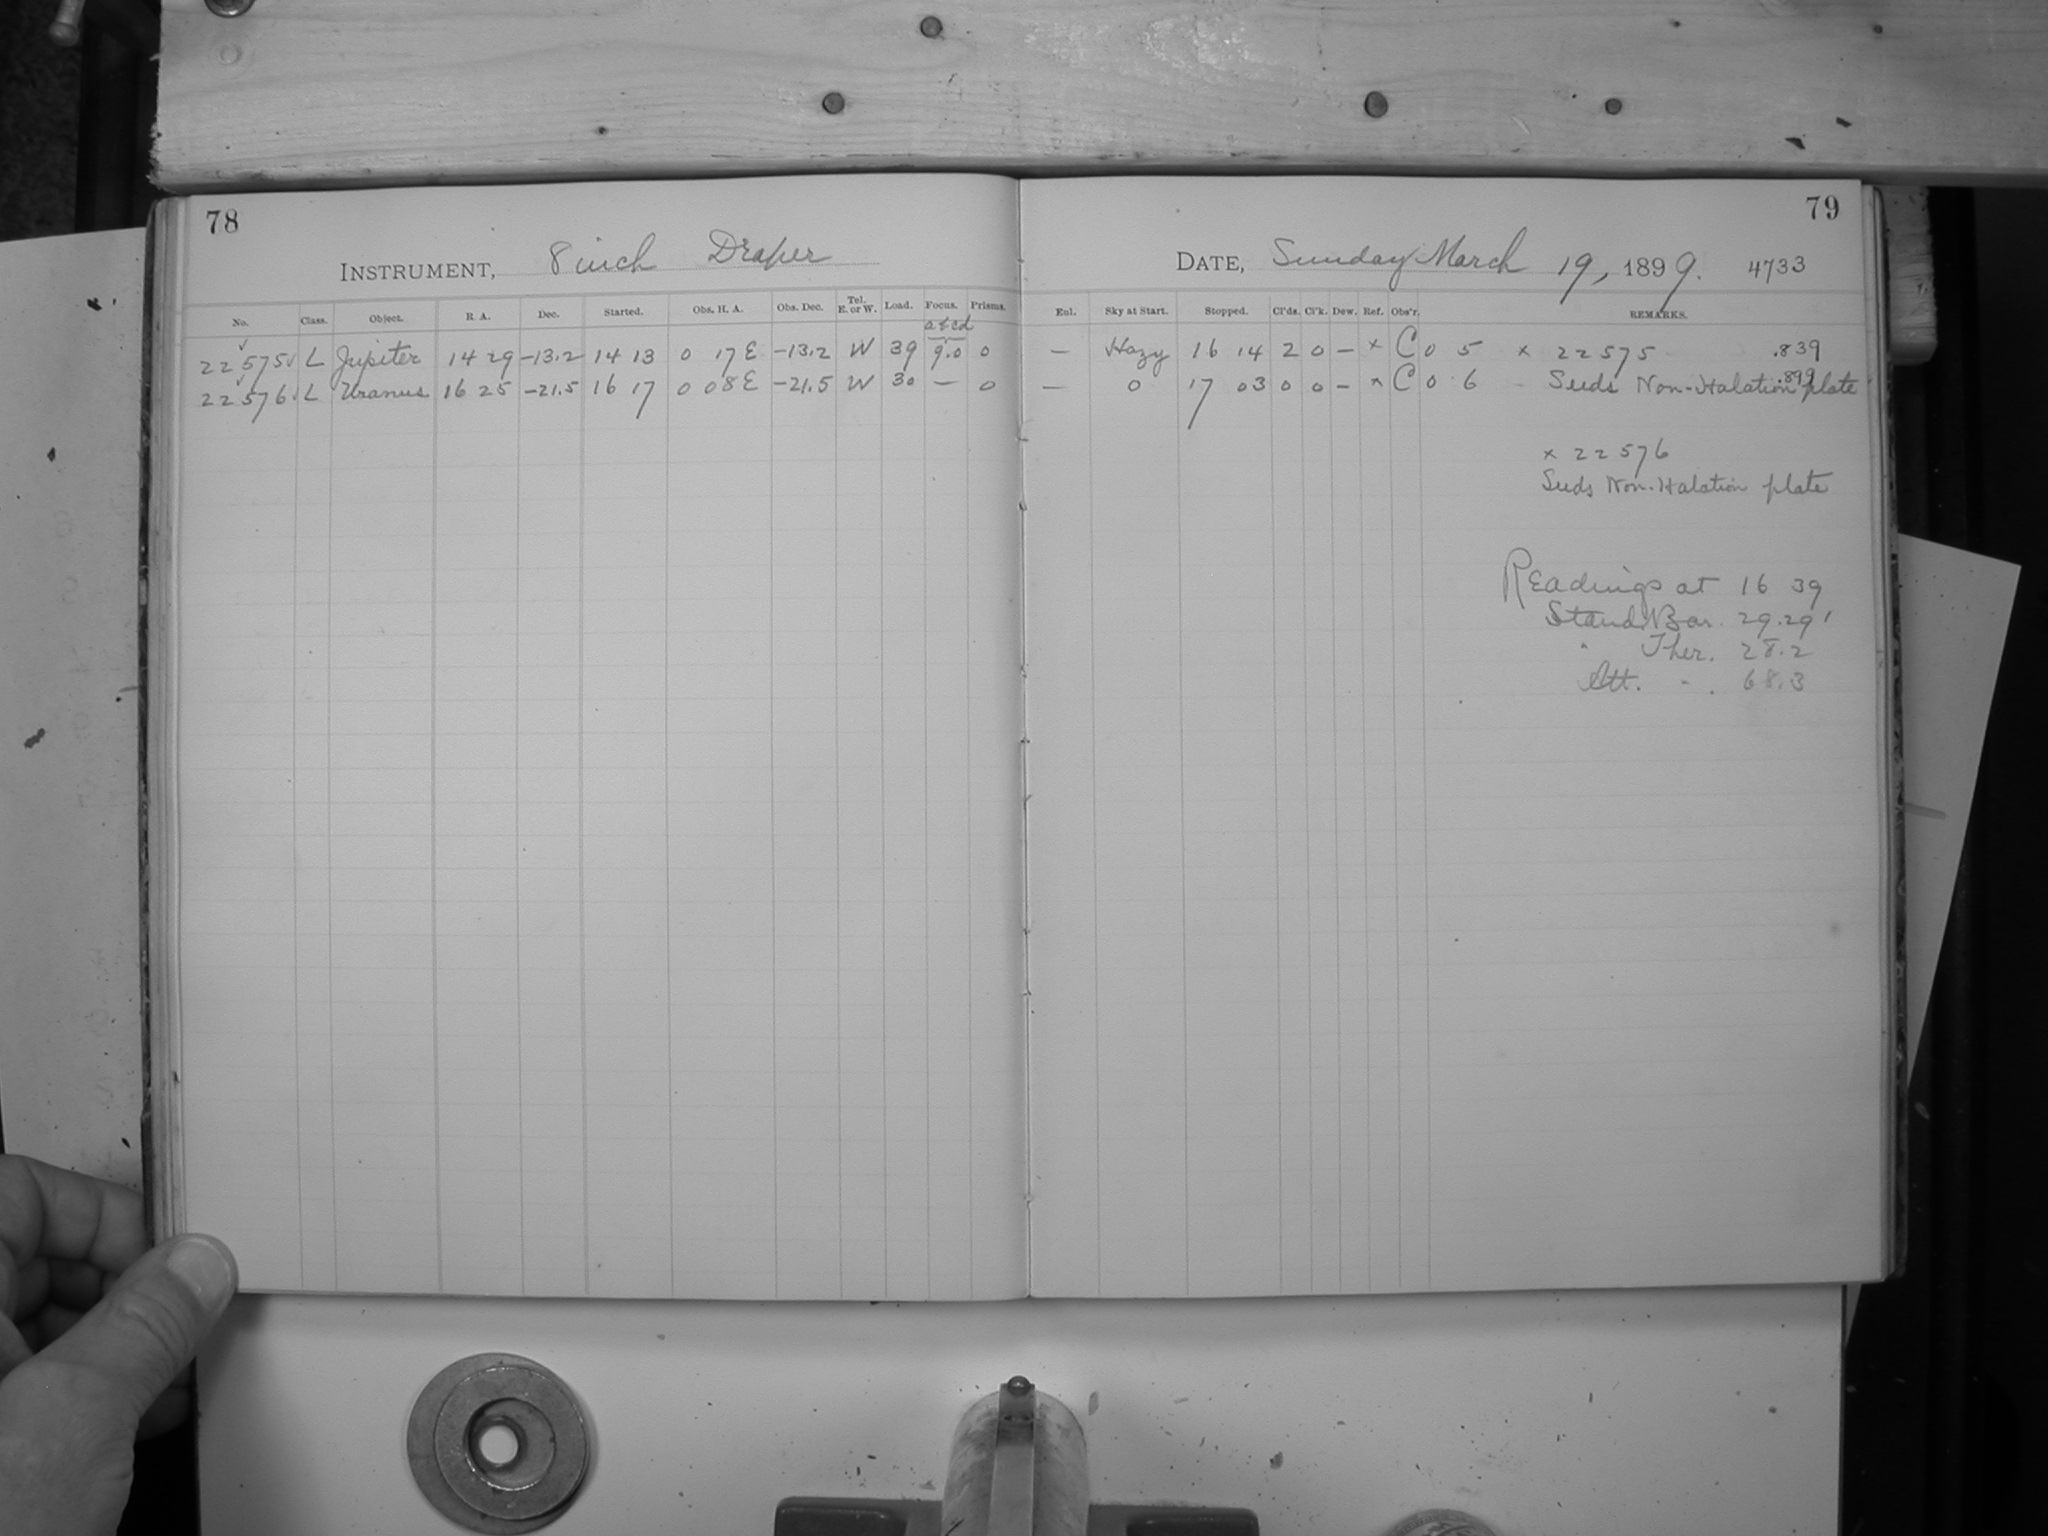 78
INSTRUMENT, 8 inch Draper
No. Class. Object. R. A. Dec. Started. Obs. H. A. Obs. Dec. Tel. E. or W. Load. Focus. Prisms.
a b c d
22575 ✓ L Jupiter 14 29 -13.2 14 13 0 17 E -13.2 W 39 9.0 0
22576 ✓ L Uranus 16 25 -21.5 16 17 0 08 E -21.5 W 30 — 0
79
DATE, Sunday March 19, 1899. 4733
Eul. Sky at Start. Stopped. Cl'ds. Cl'k. Dew. Ref. Obs'r. REMARKS.
— Hazy 16 14 2 0 — x C 0 5 x 22575 .839
— 0 17 03 0 0 — x C 0 6 Seeds Non-Halation plate .899
x 22576
Seeds Non-Halation plate
Readings at 16 39
Stand. Bar. 29.29
" Ther. 28.2
Att. " . 68.3